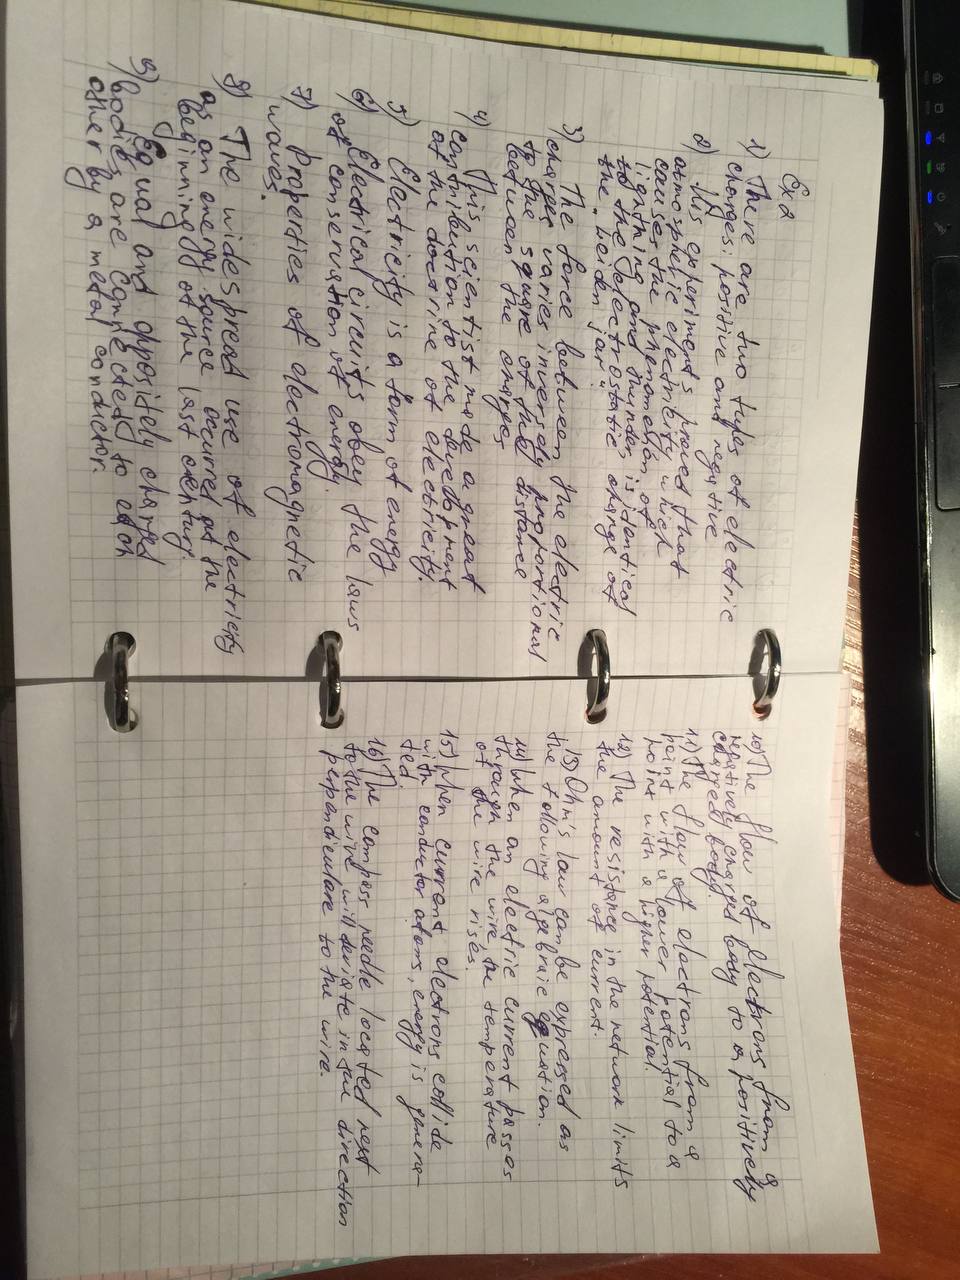 Ex 2
1) There are two types of electric
charges: positive and negative
2) His experiments proved that
atmospheric electricity which
causes the phenomenon of
lightning and thunder is identical
to the electrostatic charge of
the "Leiden jar".
3) The force between the electric
charges varies inversely proportional
to the square of the distance
between the charges
4) This scientist made a great
contribution to the development
of the doctrine of electricity.
5) Electricity is a form of energy
6) Electrical circuits obey the laws
of conservation of energy.
7) Properties of electromagnetic
waves.
8) The widespread use of electricity
as an energy source occurred at the
beginning of the last century.
9) Equal and oppositely charged
bodies are connected to each
other by a metal condictor.
10) The flow of electrons from a
negatively charged body to a positively
charged body.
11) The flow of electrons from a
point with a lower potential to a
point with a higher potential.
12) The resistance in the network limits
the amount of current.
13) Ohm's law can be expressed as
the following algebraic equation.
14) When an electric current passes
through the wire, the temperature
of the wire rises.
15) When current electrons collide
with conductor atoms, energy is genera-
ted.
16) The compass needle located next
to the wire will deviate in the direction
perpendiculare to the wire.